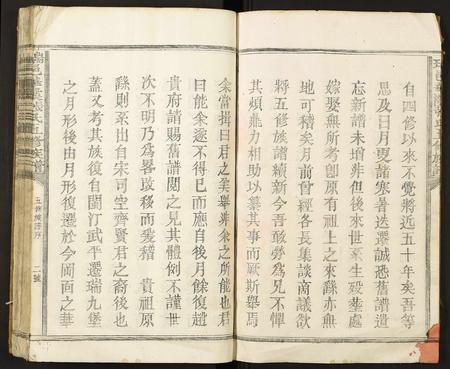 自四修以來不覺將近五十年矣吾等
思及日月更諸寒暑迭遷誠恐舊譜遺
忘新譜未增非但後來世系生歿塟處
嫁娶無所考卽原有祖上之來蘇亦無
地可稽矣月前曾經各長集議商議欲
將五修族譜續新今吾敢勞爲兄不憚
其煩鼎力相助以纂其事而厥斯舉焉
余當揖曰君之美舉非余之所能也君
曰能余遂不得已而應自後月餘復趨
貴府請賜舊譜閲之見其體例不謹世
次不明乃爲畧改移而叢稽 貴祖原
繇則系出自宋司空齊賢君之裔後也
蓋又考其族復自閩汀武平遷瑞九堡
之月形後由月形復遷於今圊面之華
五修族譜序 二號